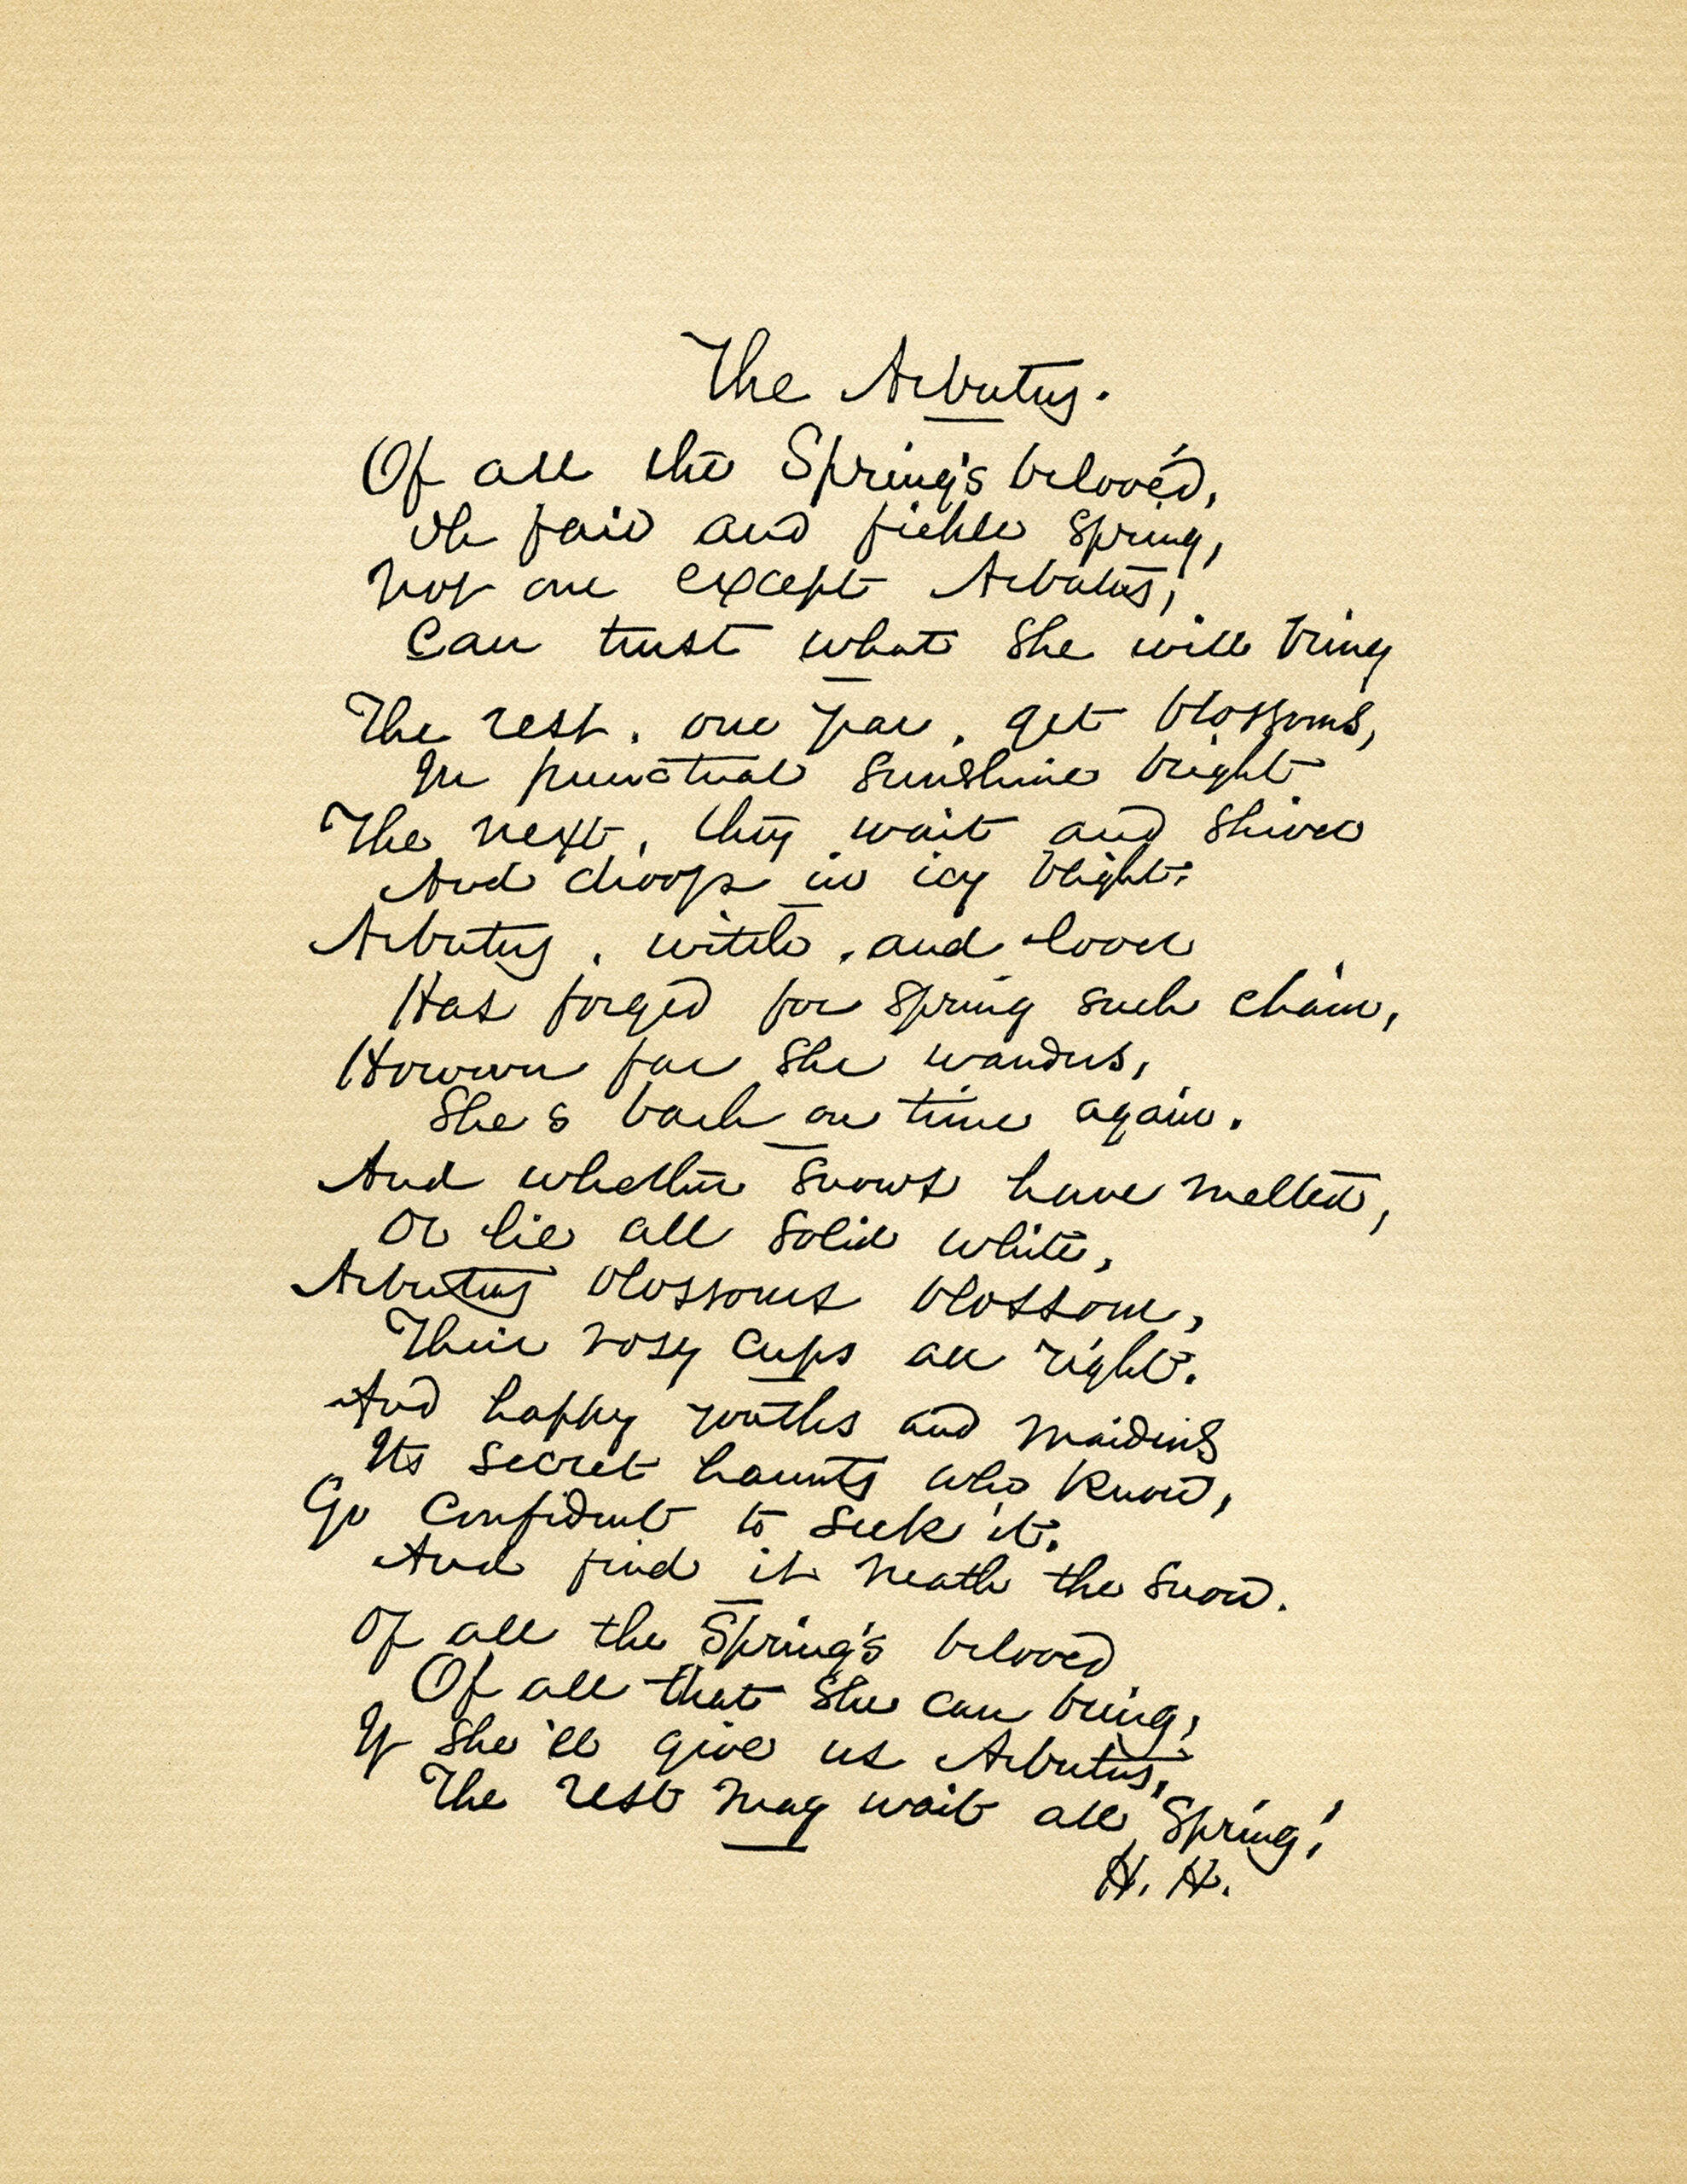 The Arbutus.
Of all the Spring's belovéd,
Oh fair and fickle Spring,
Not one except Arbutus,
Can trust what she will bring
The rest, one year, get blossoms,
In punctual sunshine bright
The next, they wait and shiver
And droop in icy blight:
Arbutus, witch, and lover
Has forged for Spring such chain,
However far she wanders,
She's back on time again.
And whether snows have melted,
Or lie all solid white,
Arbutus blossoms blossom,
Their rosy cups all right.
And happy youths and maidens
Its secret haunts who know,
Go confident to seek it,
And find it neath the snow.
Of all the Spring's beloved
Of all that she can bring,
If she'll give us Arbutus,
The rest may wait all Spring!
H. H.